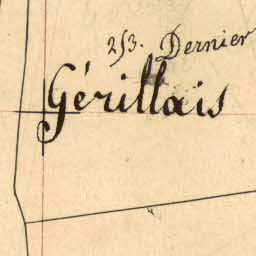 253. Dernier
Gérillais